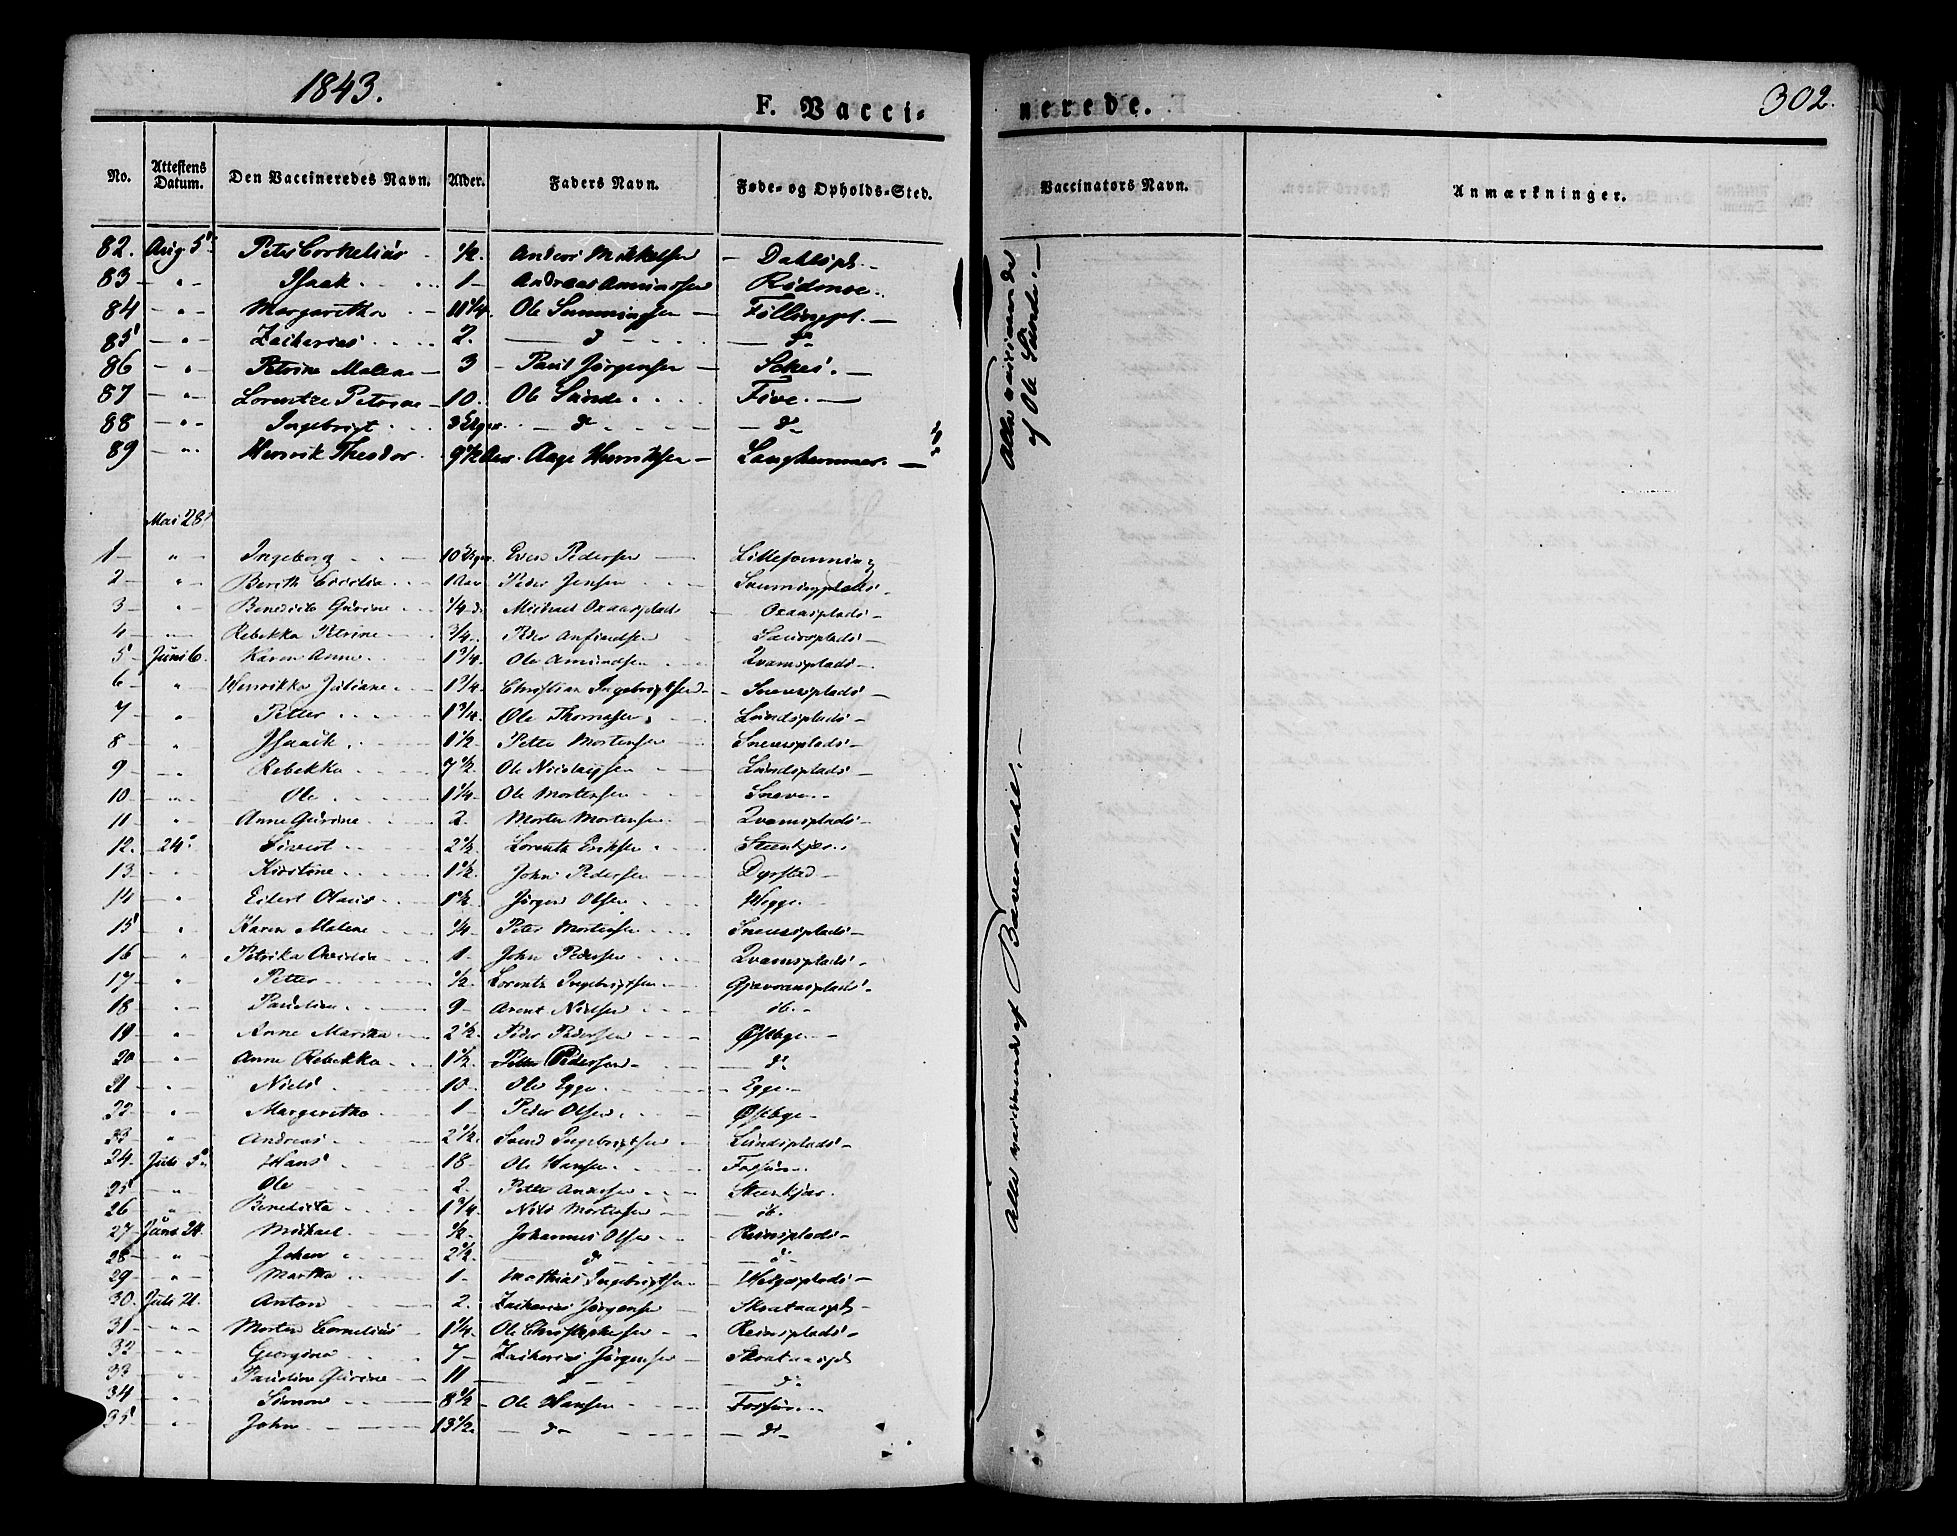 1843.
F. Vacci-
nerede.
302.
No. Attestens Datum. Den Vaccineredes Navn. Alder. Faders Navn. Føde- og Opholds-Sted. Vaccinators Navn. Anmærkninger.
82. Aug 5. Peter Cornelius 1/2. Anders Mikkelsen - Dahlspl.
83 - " - Isaak 1 - Andreas Amundssen Rødense.
84 - " - Margaretha 11 1/4. Ole Følling
85 - " - Zacharias 2. d d
86 - " - Petrine Malene - 3 - Paul Jørgensen -
87 - " - Lorentze Petrine - 10. Ole Sunde Five. -
88 - " - Ingebrigt d d
89 - " - Henrik Theodor 9 1/2 Aar. Aage Henriksen - Langhammer. -
Mai 28
1 - " Ingeborg 10 Even Pedersen
2 - " Berith Cecilia 1 Aar Peder Jensen
3 " Benedicte Gurine 1/4 d. Michael
4 - " Rebekka Petrine 3/4 Peder Anfindsen
5 - Juni 6. Karen Anne 1 3/4. Ole Amundsen Qvamsplads -
6 - " Henrikka Juliane 1 3/4. Christian Ingebrigtsen - Sneeesplads -
7 - " Petter 1 3/4. Ole Thomassen Lundsplads -
8 - " Isaak 1 1/2 Peter Mortensen Sneeesplads -
9 - " Rebekka 7 1/2. Ole Nicolaysen Lundsplads -
10 - " Ole 1 1/4. Ole Mortensen
11 - " Anne Gurine 2. Morten Mortensen Qvamsplads -
12. 24 Sivert 2 1/2. Lorentz Eriksen Steenkjær.
13 - " Kirstine 1 1/2. John Pedersen Dyrstad -
14 - " Eilert Olaus 1 1/2. Jørgen Olsen Hegge. -
15 - " Karen Malene 1/4 Peter Mortensen Sneeesplads -
16 - " Petrika 1 - John Pedersen Qvamsplads -
17 - " Petter 1/2 Lorentz Ingebrigtsen
18 " Pauline 9 - Arent Nielsen ib.
19 - " Anne Martha 2 1/2. Peder Pedersen Østbye. -
20 - " Anne Rebekka 1 1/2. Petter Pedersen - d
21 - " Niels 10 - Ole Egge Egge. -
22 - " Margaretha 1 - Peder Olsen Østbye -
23 - " Andreas 2 1/2. Ingebrigtsen Lundsplads -
24. Juli 5. Hans 18 - Ole Hansen
25 - " Ole 2. Petter Andersen Steenkjær.
26 " Benedicta 1 3/4. Nils Mortensen ib.
27 - Juni 24. Michael 1/2. Johannes Olsen Reinsplads -
28 - " Johan 2 1/2. d d -
29 - " Martha 1 - Mathias Ingebrigtsen
30. Juli 21. Anton 2. Zacharias Jørgensen
31 - " - Morten Cornelius 1 1/4. Ole Christophersen Reinsplads -
32 - " Georgine 7 - Zacharias Jørgensen -
33 - " Pauline Gurine 11 - d d
34 - " Simon 8 1/2 - Ole Hansen
35 - " John 13 1/2. - d - - d -
Alle vaccinerede
af Ole Sunde. -
Alle vaccinerede af